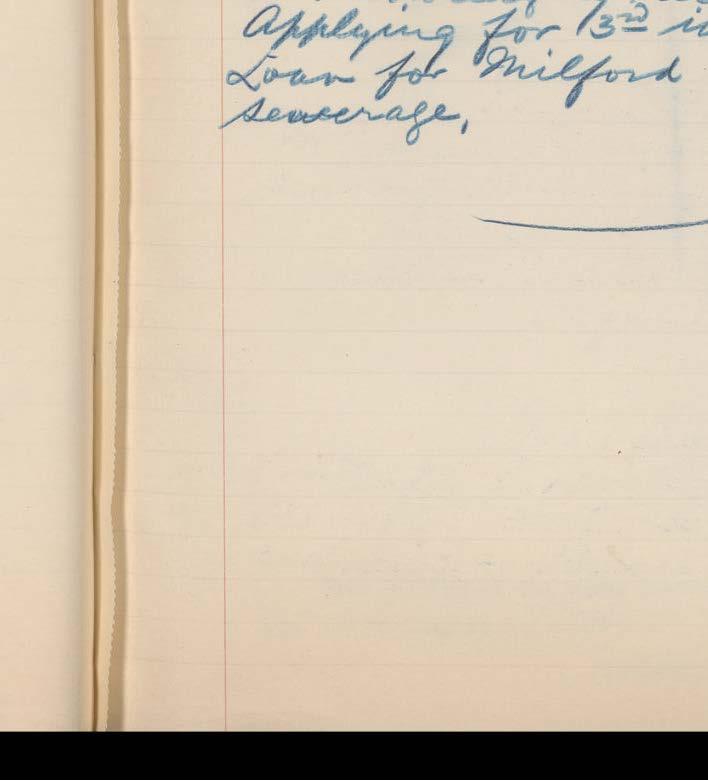 Applying for 3rd
Loan for Milford
sewerage,